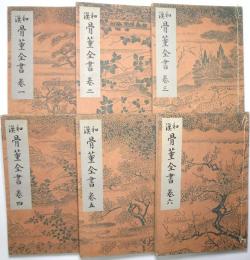 和漢
骨董全書 巻一
和漢
骨董全書 巻二
和漢
骨董全書 巻三
和漢
骨董全書 巻四
和漢
骨董全書 巻五
和漢
骨董全書 巻六